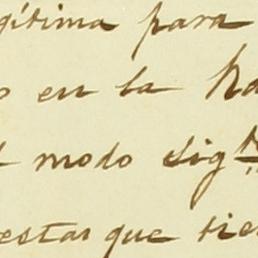 gítima para
o en la Ha
l modo sig^te
estar que tie